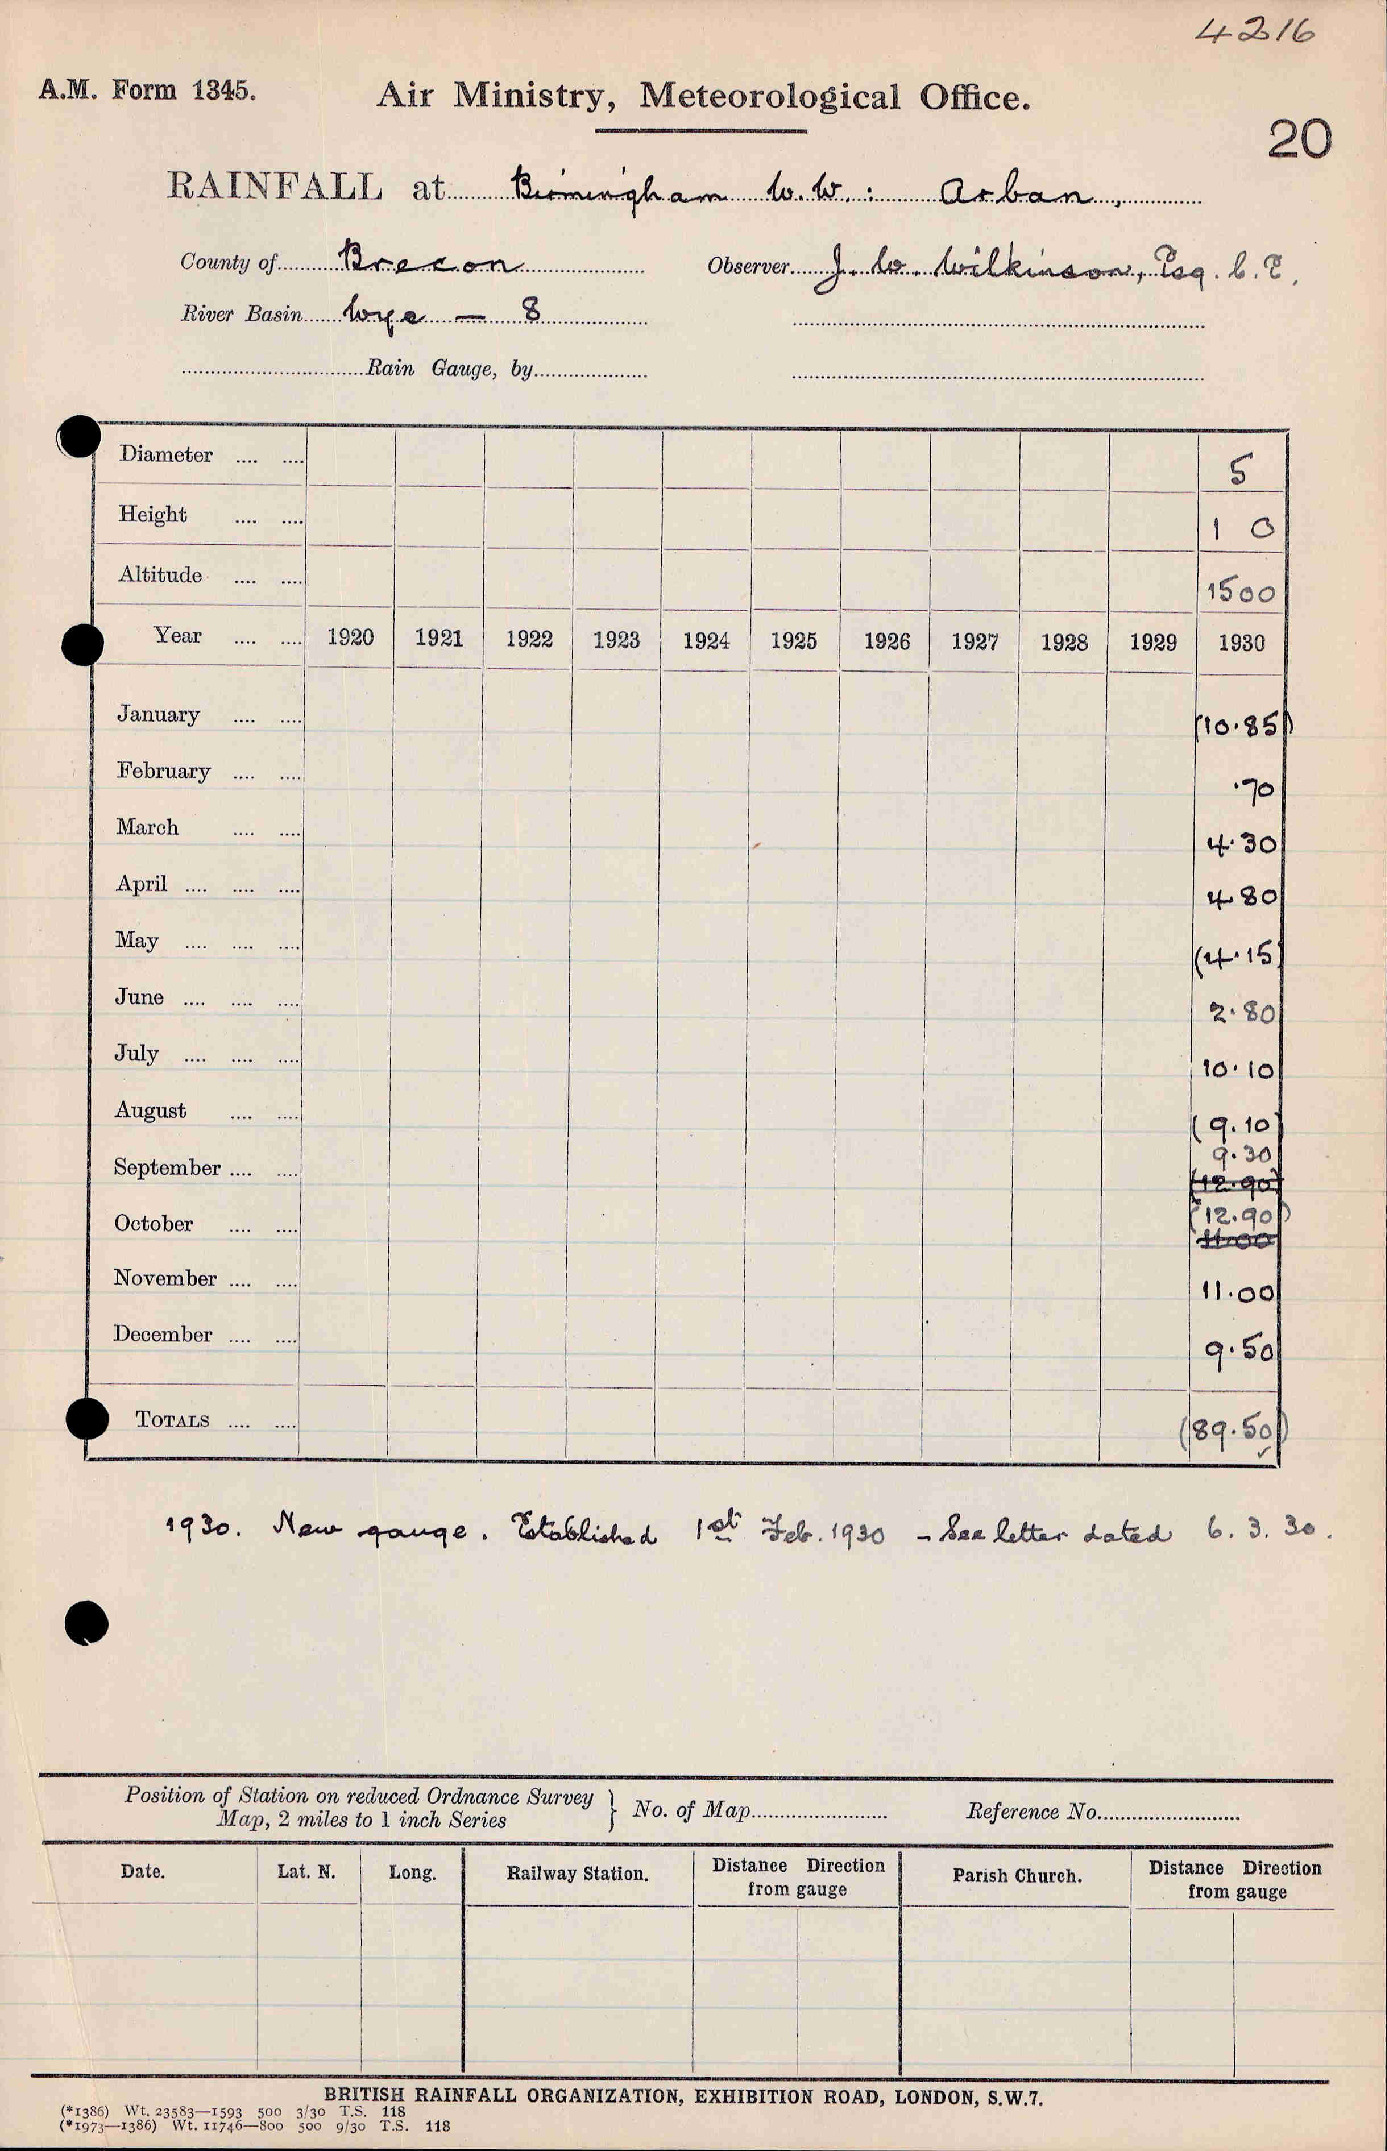 4216
A.M. Form 1345. Air Ministry, Meteorological Office.
20
RAINFALL at Birmingham W.W.: Arban,
County of Brecon Observer J. W. Wilkinson, Esq. C.E.
River Basin Wye — 8
Rain Gauge, by
Diameter .... .... 5
Height .... .... 1 0
Altitude .... .... 1500
Year .... .... 1920 1921 1922 1923 1924 1925 1926 1927 1928 1929 1930
January .... .... (10.85)
February .... .... .70
March .... .... 4.30
April .... .... .... 4.80
May .... .... .... (4.15)
June .... .... .... 2.80
July .... .... .... 10.10
August .... .... (9.10)
9.30
September .... .... (12.90)
October .... .... (12.90)
11.00
November .... .... 11.00
December .... .... 9.50
TOTALS .... .... (89.50)
1930. New gauge. Established 1st Feb. 1930 - See letter dated 6.3.30.
Position of Station on reduced Ordnance Survey
Map, 2 miles to 1 inch Series } No. of Map Reference No.
Date. Lat. N. Long. Railway Station. Distance Direction from gauge Parish Church. Distance Direction from gauge
BRITISH RAINFALL ORGANIZATION, EXHIBITION ROAD, LONDON, S.W.7.
(*1386) Wt. 23583—1593 500 3/30 T.S. 118
(*1973—1386) Wt. 11746—800 500 9/30 T.S. 118